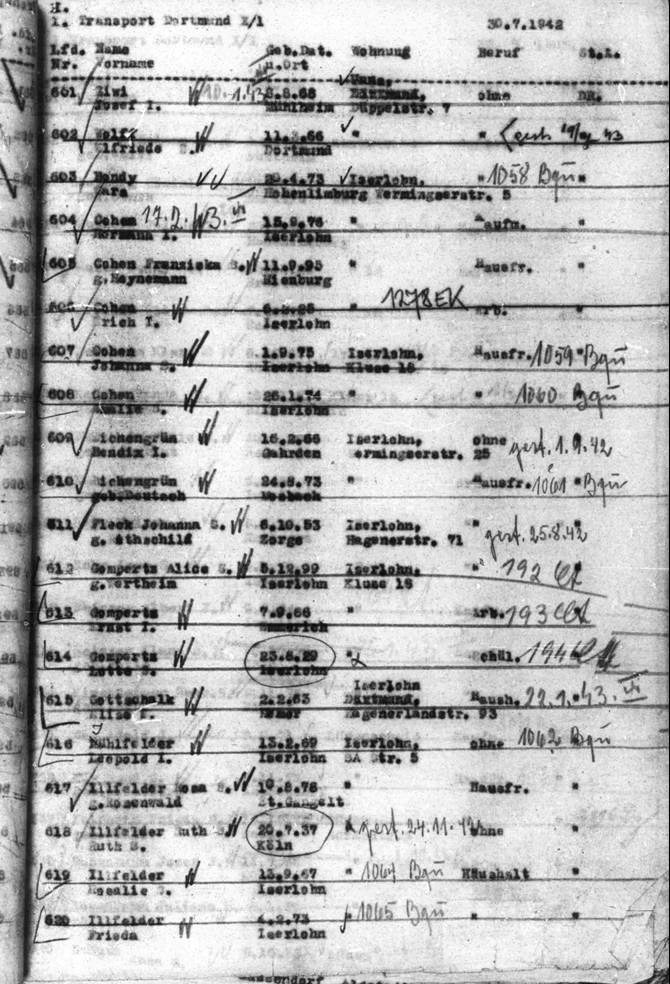 H.
1. Transport Dortmund X/1 30.7.1942
Lfd. Name Geb.Dat. Wohnung Beruf St.A.
Nr. Vorname u.Ort
601 8.8.68 ohne DR.
Josef I. Mühlheim Düppelstr. 7
602 Wolff 11.2.66 " "
Elfriede S. Dortmund
603 Bendy 29.4.73 Iserlohn, " 1058 Bgü "
Sara Hohenlimburg Wermingserstr. 5
604 Cohen 17.2.43. 15.9.76 " Kaufm. "
Hermann I. Iserlohn
605 Cohen Franziska S. 11.9.95 " Hausfr. "
g.Heynemann Nienburg
606 Cohen " 1278 EK Arb. "
Erich I. Iserlohn
607 Cohen 1.9.75 Iserlohn, Hausfr. 1059 Bgü
Johanna S. Iserlohn Kluse 18
608 Cohen 26.1.74 " " 1060 Bgü
Amalie S. Iserlohn
609 Eichengrün 16.2.66 Iserlohn, ohne
Bendix I. Wermingserstr. 25
610 Eichengrün 24.8.73 " Hausfr. 1061 Bgü
geb.Deutsch Mosbach
611 Fleck Johanna S. 6.10.53 Iserlohn, " gest. 25.8.42
Zorge Hagenerstr. 71
612 Gompertz Alice S. 5.12.99 Iserlohn, " 192
g.Wertheim Iserlohn Kluse 18
613 Gompertz 7.9.86 " Arb. 193
Ernst I. Emmerich
614 Gompertz 23.8.29 " Schül. 194
Lotte S. Iserlohn
Iserlohn
615 Gottschalk 2.2.63 Dortmund, Haush. 22.1.43.
Hemer Hagenerlandstr. 93
616 Mühlfelder 13.2.69 Iserlohn, ohne 1062 Bgü
Leopold I. Iserlohn SA Str. 5
617 Illfelder Rosa S. " Hausfr. "
g.Rosenwald St.Gangelt
618 Illfelder Ruth S. 20.7.37 gest. 24.11.42 ohne "
Ruth S. Köln
619 Illfelder 13.9.67 " 1064 Bgü Haushalt "
Rosalie S. Iserlohn
620 Illfelder 4.2.73 1065 Bgü " "
Frieda Iserlohn